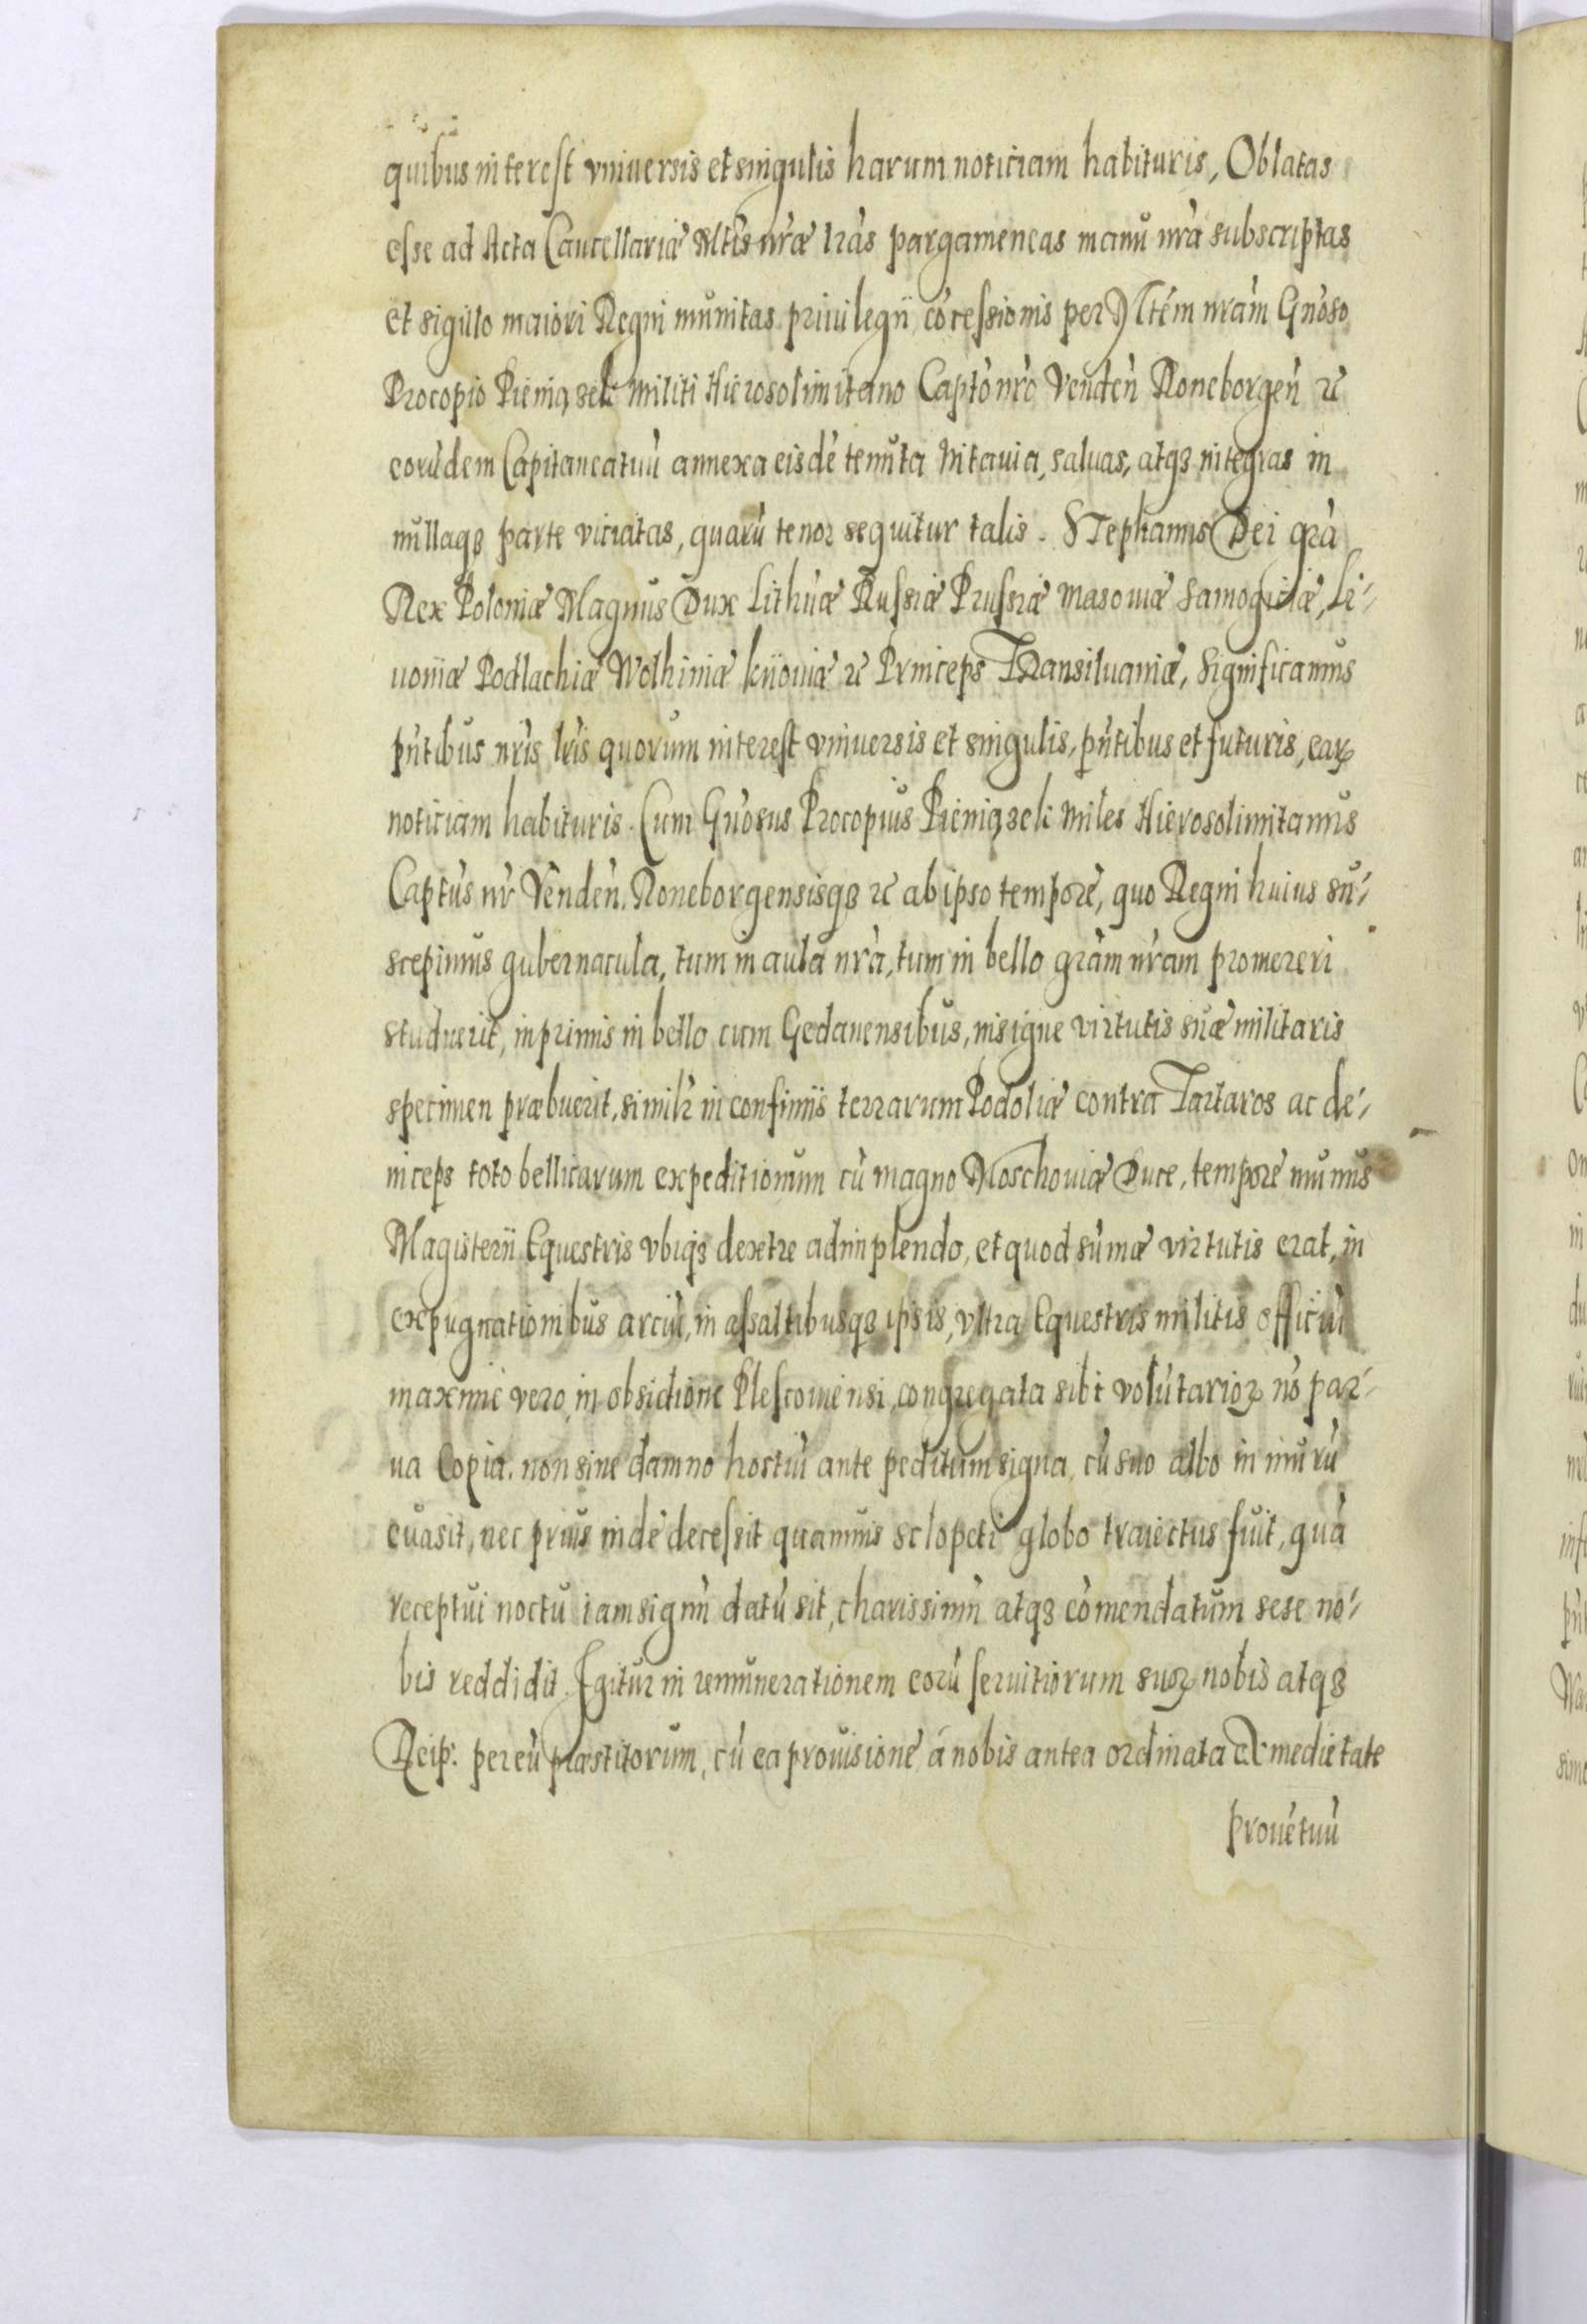 quibus interest vniuersis et singulis harum noticiam habituris, Oblatas
esse ad Acta Cancellariæ Mtis nræ lras pargameneas manu nra subscriptas
et sigillo maiori Regni munitas priuilegii cōcessionis per Mtem nram Gnoso
Procopio Pieniązek Militi Hierosolimitano Capto nro Venden Roneborgen ꝛc
eorūdem Capitaneatuū annexa eisdē tenuta Nitauia, saluas, atqꝫ integras in
nullaqꝫ parte viciatas, quarū tenor sequitur talis. STephanus Dei gra
Rex Poloniæ Magnus Dux Lithuæ Russiæ Prussiæ Masouiæ Samogitiæ, Li-
uoniæ Podlachiæ Wolhiniæ kiiouiæ ꝛc Princeps Transiluaniæ, Significamus
pntibus nris lris quorum interest vniuersis et singulis, pntibus et futuris, eaꝝ
noticiam habituris. Cum Gnosus Procopius Pieniązek Miles Hierosolimitanus
Captus nr Venden. Roneborgensisqꝫ ꝛc ab ipso tempore, quo Regni huius su-
scepimus gubernacula, tum in aula nra, tum in bello gram nram promereri
studuerit, inprimis in bello cum Gedanensibus, insigne virtutis suæ militaris
specimen præbuerit, similr in confiniis terrarum Podoliæ contra Tartaros ac de-
inceps toto bellicarum expeditionum cū magno Moschouiæ Duce, tempore munus
Magisterii Equestris vbiqꝫ dextre adimplendo, et quod sūmæ virtutis erat, in
expugnationibus arciū, in assaltibusqꝫ ipsis, vltra Equestris militis officiū
maxime vero, in obsidione Plescouiensi, congregata sibi volūtarioꝝ nō par-
ua Copia. non sine damno hostiū ante peditum signa, cū suo albo in murū
euasit, nec prius inde decessit quamuis sclopeti globo traiectus fuit, quā
receptui noctu iam signū datū sit, charissimū atqꝫ cōmendatum sese no-
bis reddidit. Igitur in remunerationem eorū seruitiorum suoꝝ nobis atqꝫ
Reip: per eū præstitorum, cū ea prouisione á nobis antea ordinata ex medietate
prouētuū